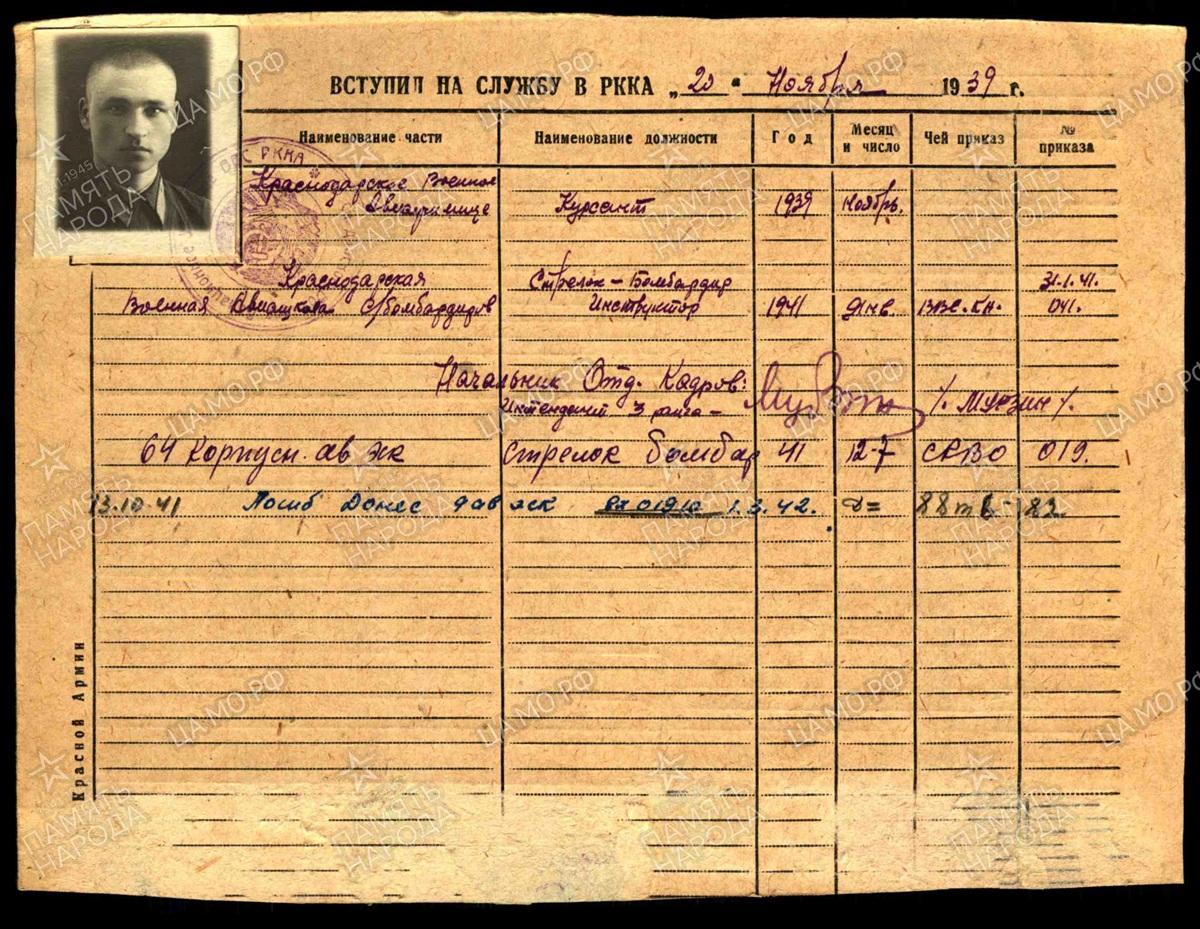 ВСТУПИЛ НА СЛУЖБУ В РККА „20“ Ноября 1939 г.
Наименование части Наименование должности Год Месяц и число Чей приказ № приказа
Краснодарское Военное
Авиаучилище Курсант 1939 Ноябрь.
Краснодарская Стрелок-Бомбардир 31.1.41.
Военная Авиашкола С/бомбардиров Инструктор 1941 Янв. ВВС.КА. 041.
Начальник Отд. Кадров:
Интендант 3 ранга – /МУРЗИН/.
64 корпусн. ав эск Стрелок бомбар 41 12-7 СКВО 019.
13.10.41 Погиб Донес ав эск вх 01910 1.3.42.
Красной Армии
ВВС РККА
1941-1945
ПАМЯТЬ
НАРОДА
ЦАМО.РФ